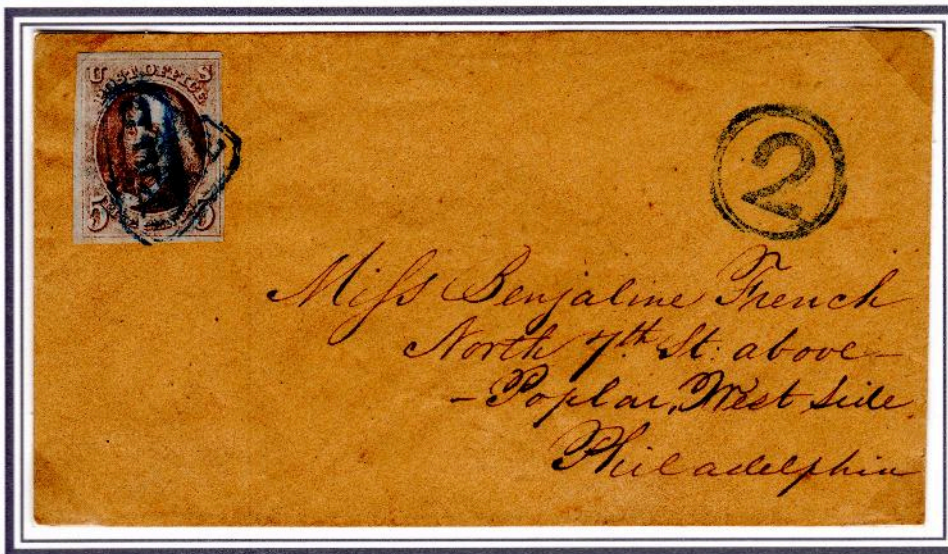 U S
POST OFFICE
5 5
2
Miss Benjaline French
North 7th St: above –
– Poplar, West side.
Philadelphia